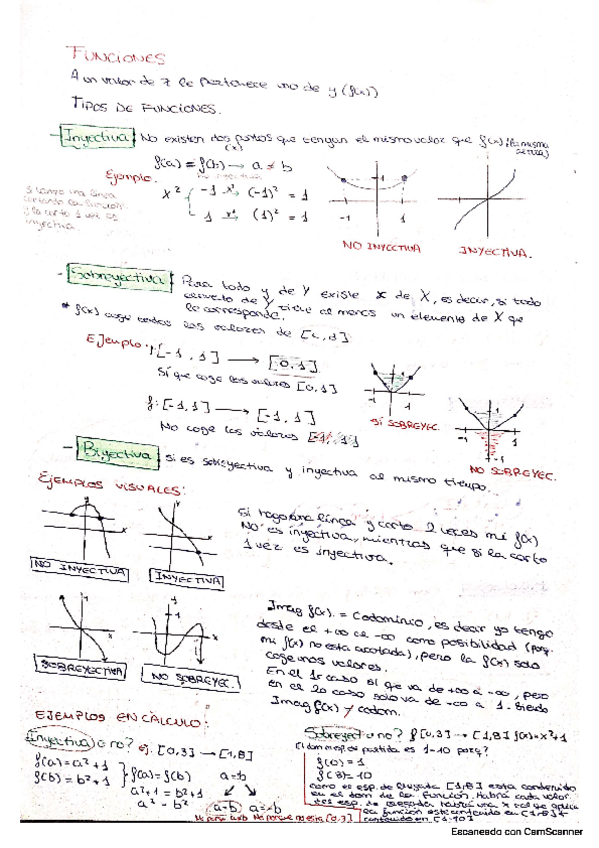 FUNCIONES
A un valor de x le pertenece uno de y (f(x))
TIPOS DE FUNCIONES.
- Inyectiva: No existen dos puntos que tengan el mismo valor que f(x)
(x)
f(a) = f(b) → a = b
Ejemplo.
x² -1 x² → (-1)² = 1
1 x² → (1)² = 1
Si tomo una línea
cortando la función
y la corto 1 vez es
inyectiva.
-1 1
NO INYECTIVA
INYECTIVA.
- Sobreyectiva: Para todo y de Y existe x de X, es decir, si todo
de Y tiene al menos un elemento de X que
le corresponde.
* f(x) coge todos los valores de
Ejemplo: f[-1, 1] → [0, 1]
Sí que coge los valores [0, 1]
-1 1
SÍ SOBREYEC.
f: [-1, 1] → [-1, 1]
No coge los valores
-1 1
-1
NO SOBREYEC.
- Biyectiva: si es sobreyectiva y inyectiva al mismo tiempo.
EJEMPLOS VISUALES:
x
x
NO INYECTIVA
INYECTIVA
Si hago una línea y corto 2 veces mi f(x)
NO es inyectiva, mientras que si la corto
1 vez es inyectiva.
1
x
SOBREYECTIVA
NO SOBREYEC.
Imag f(x) = Codominio, es decir yo tengo
desde el +∞ al -∞ como posibilidad (porq.
mi f(x) no esta acotada), pero la f(x) solo
coge unos valores.
En el 1r caso sí que va de +∞ a -∞, pero
en el 2o caso solo va de -∞ a 1. siendo
Imag f(x) ≠ codom.
EJEMPLOS EN CÁLCULO:
Inyectiva o no? ej. [0,3] → [1,8]
f(a) = a² + 1
f(b) = b² + 1
f(a) = f(b)
a² + 1 = b² + 1
a² = b²
a = b
a = b a = -b
No porque no esta [0,3]
Sobreyect o no? f [0,3] → [1,8] f(x) = x² + 1
El dom de partida es 1-10 porq?
f(0) = 1
f(3) = 10
como el esp. de llegada [1,8] esta contenido
en el dom de la función, habrá cada valor
del esp. de llegada habrá una x
la función
contenido en [1,10]
Escaneado con CamScanner